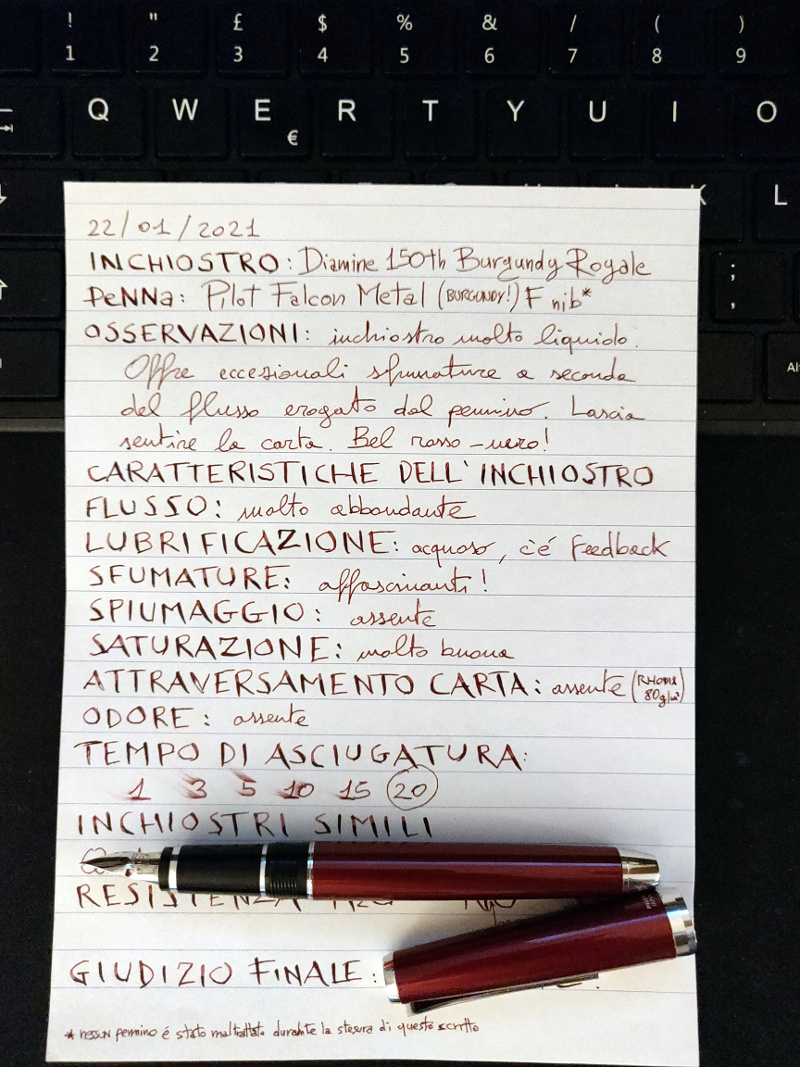 ! " £ $ % & / ( )
1 2 3 4 5 6 7 8 9
Q W E R T Y U I O
€
K L
;
,
Al
22/01/2021
INCHIOSTRO: Diamine 150th Burgundy Royale
PeNNa: Pilot Falcon Metal (BURGUNDY!) F nib*
OSSERVAZIONI: inchiostro molto liquido.
Offre eccezionali sfumature a seconda
del flusso erogato dal pennino. Lascia
sentire la carta. Bel rosso-nero!
CARATTERISTICHE DELL'INCHIOSTRO
FLUSSO: molto abbondante
LUBRIFICAZIONE: acquoso, c'é feedback
SFUMATURE: affascinanti!
SPIUMAGGIO: assente
SATURAZIONE: molto buona
ATTRAVERSAMENTO CARTA: assente (RHODIA 80g/m²)
ODORE: assente
TEMPO DI ASCIUGATURA:
1 3 5 10 15 20
INCHIOSTRI SIMILI
RESISTENZA
GIUDIZIO FINALE:
* nessun pennino é stato maltrattato durante la stesura di questo scritto